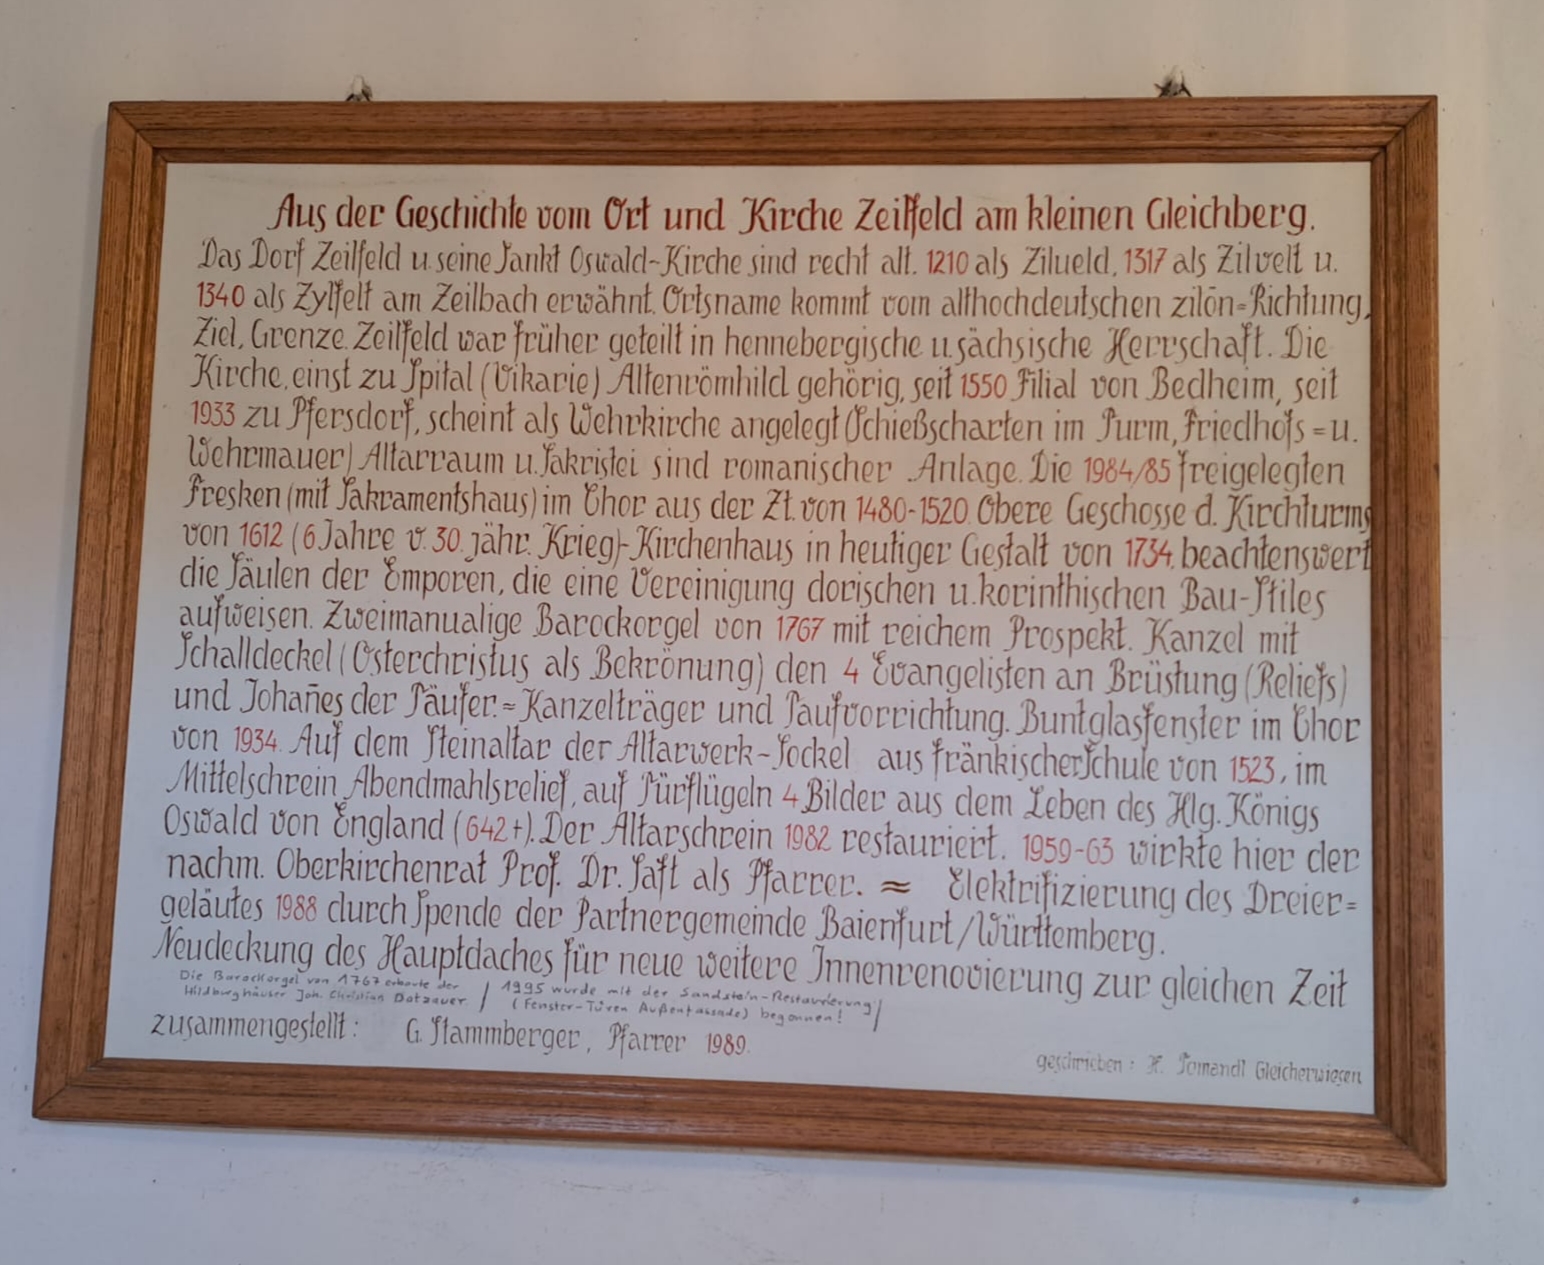 Aus der Geschichte vom Ort und Kirche Zeilfeld am kleinen Gleichberg.
Das Dorf Zeilfeld u. seine Sankt Oswald-Kirche sind recht alt. 1210 als Zilueld, 1317 als Zilvelt u.
1340 als Zylfelt am Zeilbach erwähnt. Ortsname kommt vom althochdeutschen zilōn=Richtung,
Ziel, Grenze. Zeilfeld war früher geteilt in hennebergische u. sächsische Herrschaft. Die
Kirche, einst zu Spital (Vikarie) Altenrömhild gehörig, seit 1550 Filial von Bedheim, seit
1933 zu Pfersdorf, scheint als Wehrkirche angelegt (Schießscharten im Turm, Friedhofs = u.
Wehrmauer) Altarraum u. Sakristei sind romanischer Anlage. Die 1984/85 freigelegten
Fresken (mit Sakramentshaus) im Chor aus der Zt. von 1480-1520. Obere Geschosse d. Kirchturms
von 1612 (6 Jahre v. 30. jähr. Krieg)-Kirchenhaus in heutiger Gestalt von 1734, beachtenswert
die Säulen der Emporen, die eine Vereinigung dorischen u. korinthischen Bau-Stiles
aufweisen. Zweimanualige Barockorgel von 1767 mit reichem Prospekt. Kanzel mit
Schalldeckel (Osterchristus als Bekrönung) den 4 Evangelisten an Brüstung (Reliefs)
und Johañes der Täufer.=Kanzelträger und Taufvorrichtung. Buntglasfenster im Chor
von 1934. Auf dem Steinaltar der Altarwerk-Sockel aus fränkischer Schule von 1523, im
Mittelschrein Abendmahlsrelief, auf Türflügeln 4 Bilder aus dem Leben des Hlg. Königs
Oswald von England (642+). Der Altarschrein 1982 restauriert. 1959-63 wirkte hier der
nachm. Oberkirchenrat Prof. Dr. Saft als Pfarrer. ≈ Elektrifizierung des Dreier=
geläutes 1988 durch Spende der Partnergemeinde Baienfurt/Württemberg.
Neudeckung des Hauptdaches für neue weitere Innenrenovierung zur gleichen Zeit
Die Barockorgel von 1767 erbaute der / 1995 wurde mit der Sandstein-Restaurierung /
Hildburghäuser Joh. Christian Dotzauer. (Fenster-Türen Außenfassade) begonnen!
zusammengestellt: G. Stammberger, Pfarrer 1989.
geschrieben: H. Tomandl Gleicherwiesen